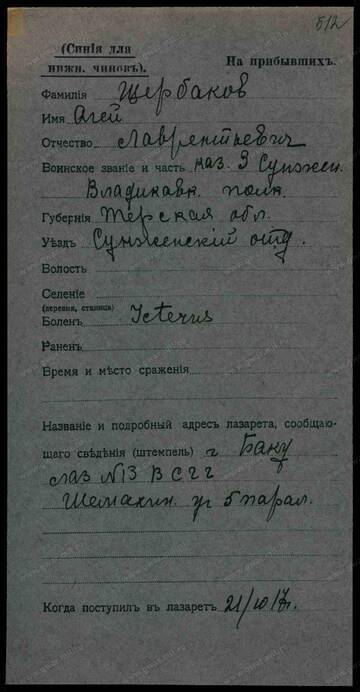 512
(Синія для
нижн. чиновъ).
На прибывшихъ.
Фамилія Щербаков
Имя Агей
Отчество Лаврентьевич
Воинское званіе и часть каз. 3 Сунжен.
Владикавк. полк.
Губернія Терская обл.
Уѣздъ Сунженскій отд.
Волость
Селеніе
(деревня, станица)
Боленъ Icterus
Раненъ
Время и мѣсто сраженія
Названіе и подробный адресъ лазарета, сообщаю-
щаго свѣдѣнія (штемпель) г Баку
лаз N13 В С Г
Шемахин. уг 5 парал.
Когда поступил въ лазаретъ 21/10 17г.